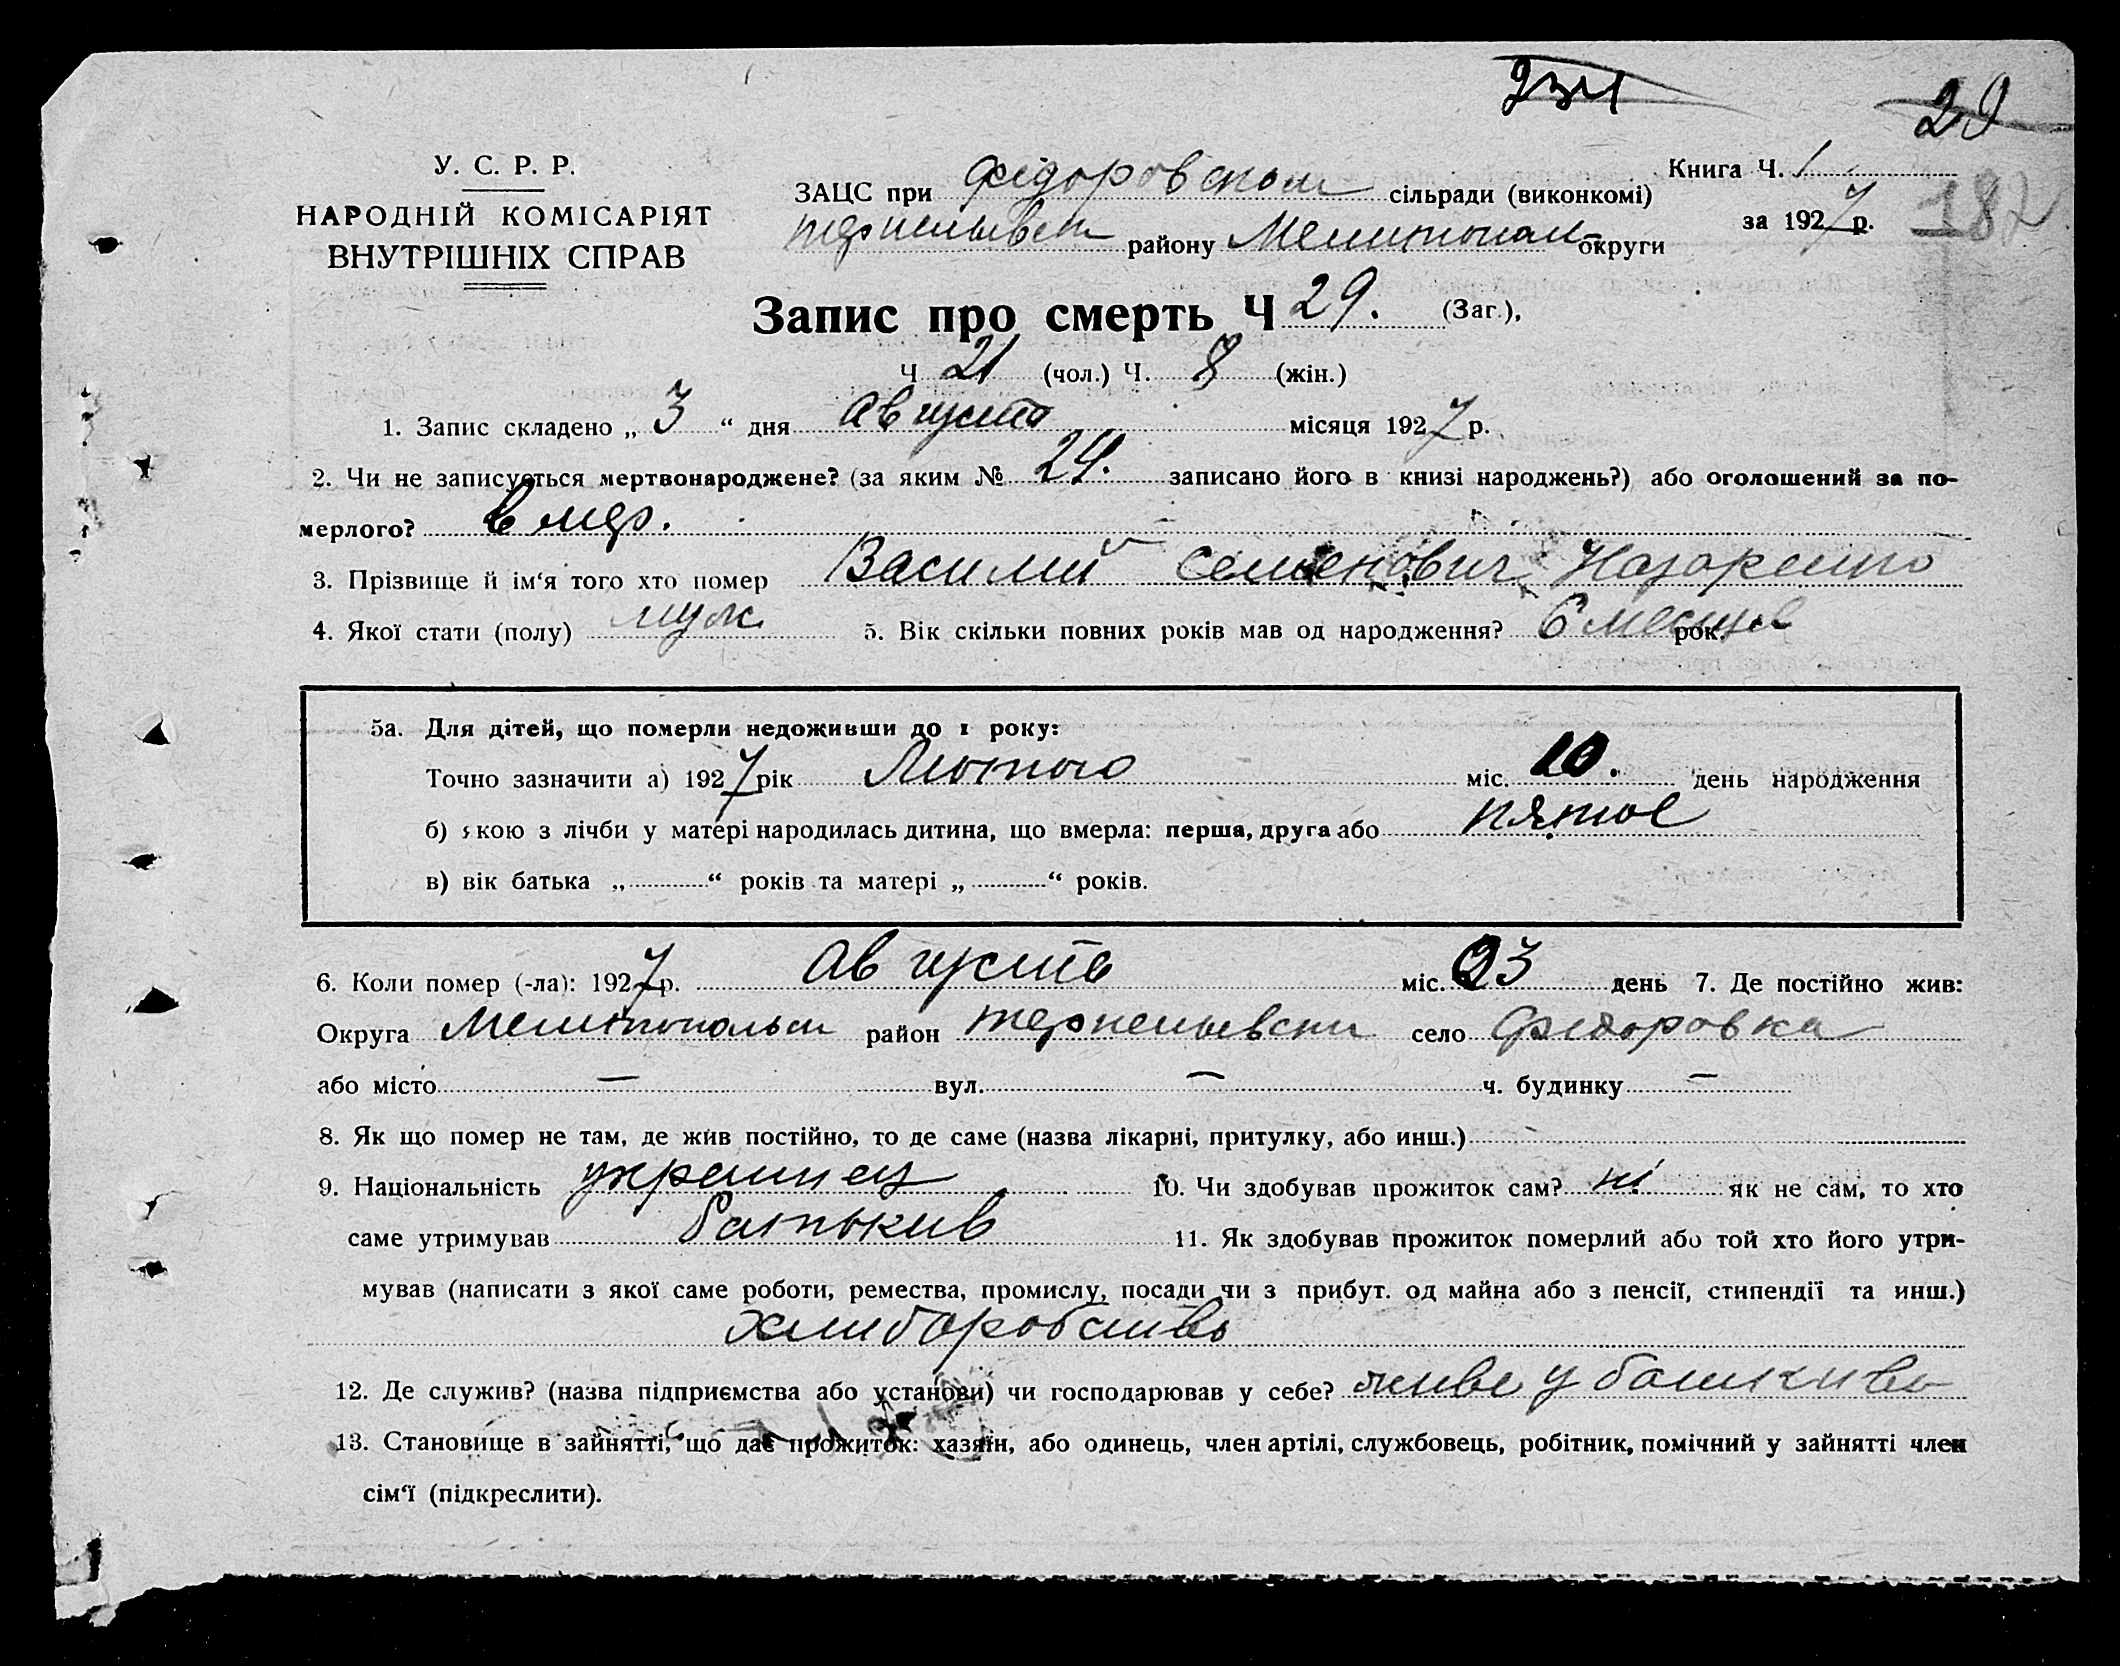 29
У. С. Р. Р.
НАРОДНІЙ КОМІСАРІЯТ
ВНУТРІШНІХ СПРАВ
ЗАЦС при Федоровском сільради (виконкомі)
Книга Ч. 1
за 1927 р. 182
району Мелитопол округи
Запис про смерть Ч 29. (Заг.),
Ч 21 (чол.) Ч. 8 (жін.)
1. Запис складено „ 3 “ дня августа місяця 1927 р.
2. Чи не записується мертвонароджене? (за яким № 24. записано його в книзі народжень?) або оголошений за по-
мерлого? вмер.
3. Прізвище й ім‘я того хто помер Василий Семенович Назаренко
4. Якої стати (полу) муж 5. Вік скільки повних років мав од народження? 6 месяце рок.
5а. Для дітей, що померли недоживши до 1 року:
Точно зазначити а) 1927 рік Лютого міс. 10. день народження
б) якою з лічби у матері народилась дитина, що вмерла: перша, друга або пятое
в) вік батька „ “ років та матері „ “ років.
6. Коли помер (-ла): 1927 р. августа міс. 03 день 7. Де постійно жив:
Округа Мелитопольск район село Федоровка
або місто — вул. — ч. будинку —
8. Як що помер не там, де жив постійно, то де саме (назва лікарні, притулку, або инш.)
9. Національність украинец 10. Чи здобував прожиток сам? ні як не сам, то хто
саме утримував батькив 11. Як здобував прожиток померлий або той хто його утри-
мував (написати з якої саме роботи, ремества, промислу, посади чи з прибут. од майна або з пенсії, стипендії та инш.)
хлиборобство
12. Де служив? (назва підприємства або установи) чи господарював у себе? живе у батькивь
13. Становище в зайнятті, що дає прожиток: хазяїн, або одинець, член артілі, службовець, робітник, помічний у зайнятті член
сім‘ї (підкреслити).